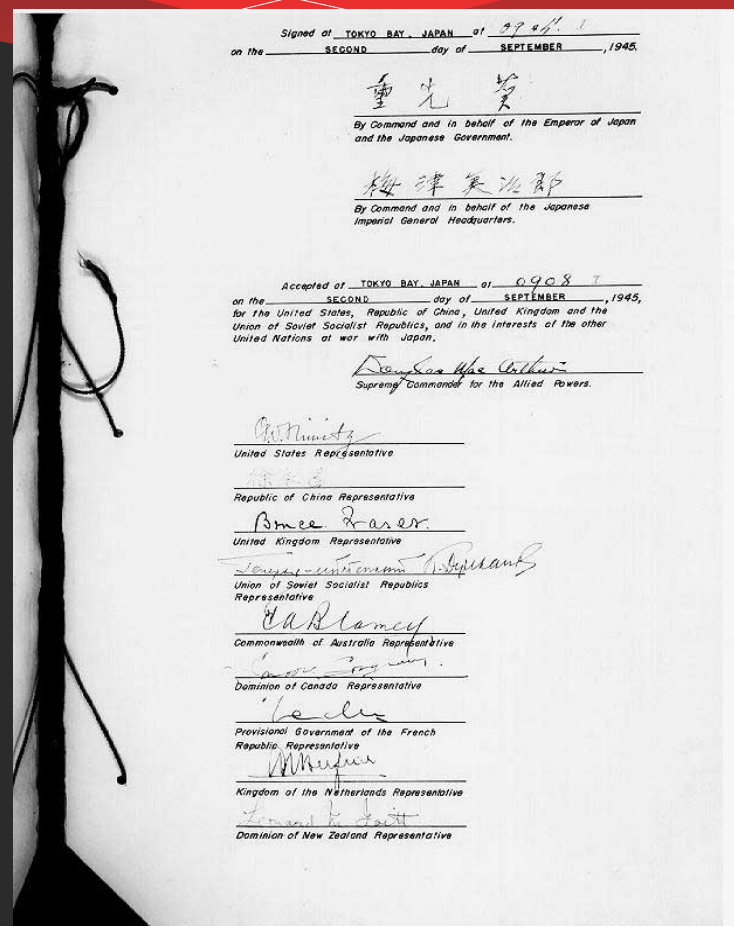 Signed at TOKYO BAY, JAPAN at 0904 I
on the SECOND day of SEPTEMBER, 1945.
重光葵
By Command and in behalf of the Emperor of Japan
and the Japanese Government.
梅津美治郎
By Command and in behalf of the Japanese
Imperial General Headquarters.
Accepted at TOKYO BAY, JAPAN at 0908 I
on the SECOND day of SEPTEMBER, 1945,
for the United States, Republic of China, United Kingdom and the
Union of Soviet Socialist Republics, and in the interests of the other
United Nations at war with Japan.
Douglas MacArthur
Supreme Commander for the Allied Powers.
C.W. Nimitz
United States Representative
徐永昌
Republic of China Representative
Bruce Fraser.
United Kingdom Representative
Union of Soviet Socialist Republics
Representative
T A Blamey
Commonwealth of Australia Representative
Dominion of Canada Representative
Provisional Government of the French
Republic Representative
Kingdom of the Netherlands Representative
Leonard M Isitt
Dominion of New Zealand Representative